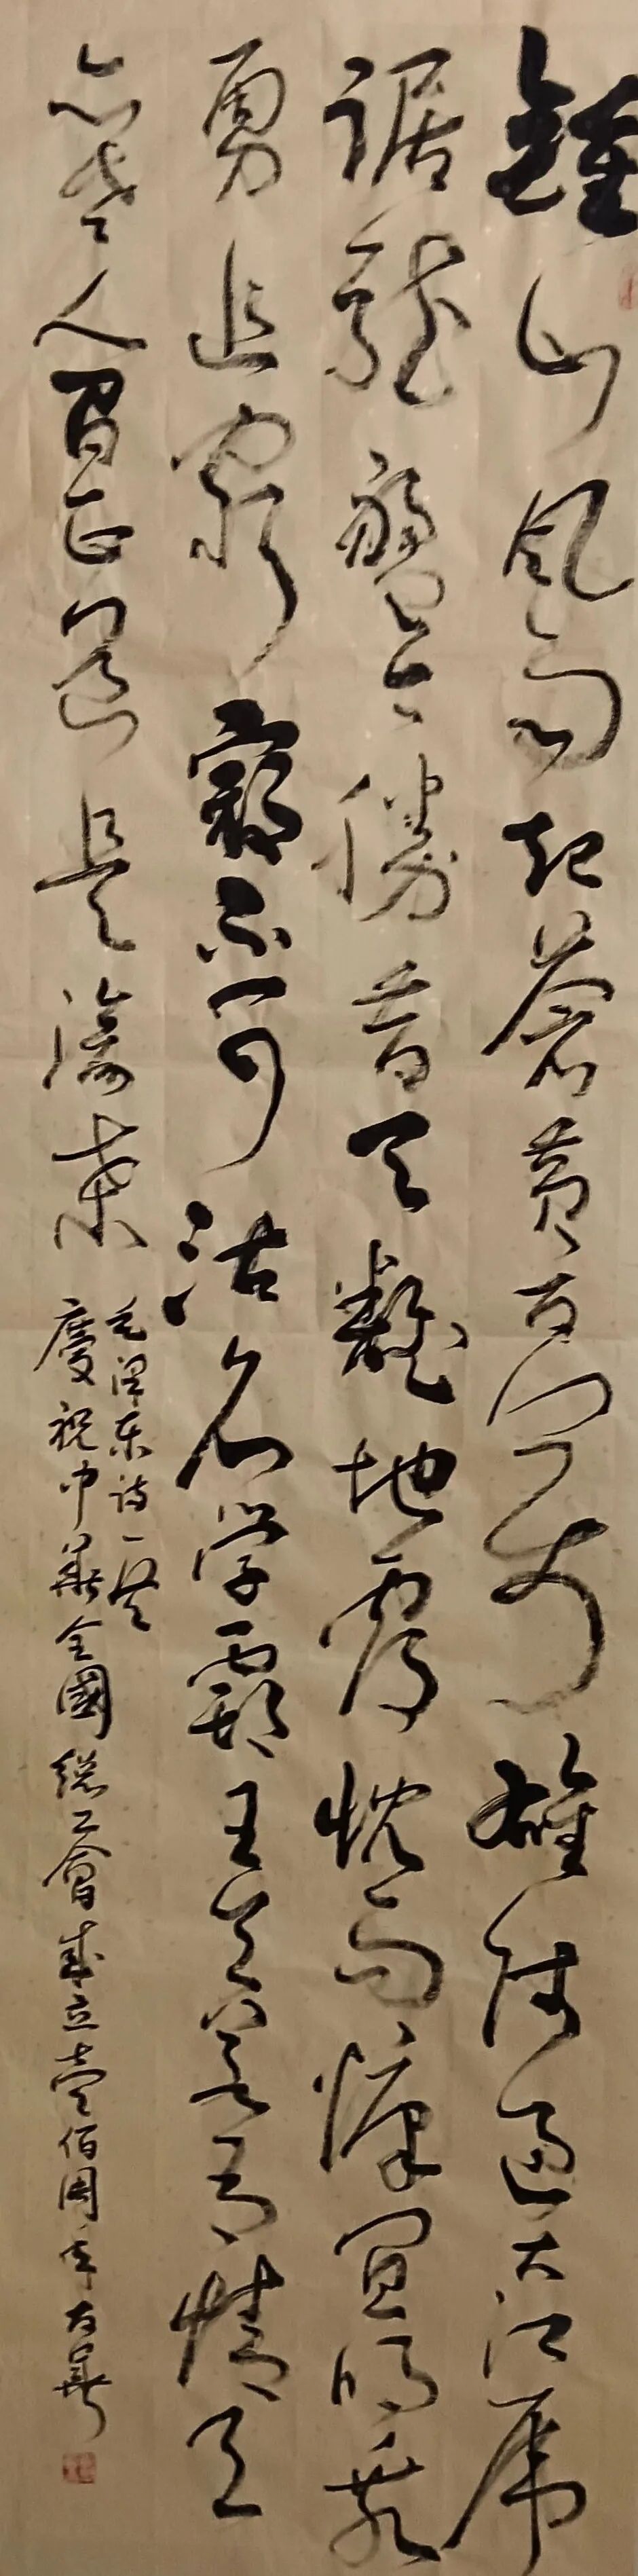 鍾山風雨起蒼黃百萬雄師過大江虎
踞龍盤今勝昔天翻地覆慨而慷宜將剩
勇追窮寇不可沽名学霸王天若有情天
亦老人間正道是滄桑
毛澤東詩一首
慶祝中華全國總工會成立壹佰周年